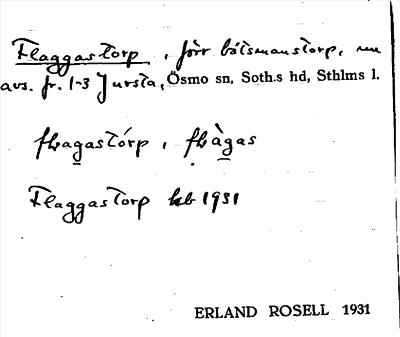 Flaggastorp, förr båtsmanstorp, nu
avs. fr. 1-3 Jursta, Ösmo sn, Soth.s hd, Sthlms l.
flagastórp, flàgas
Flaggastorp hb 1931
ERLAND ROSELL 1931